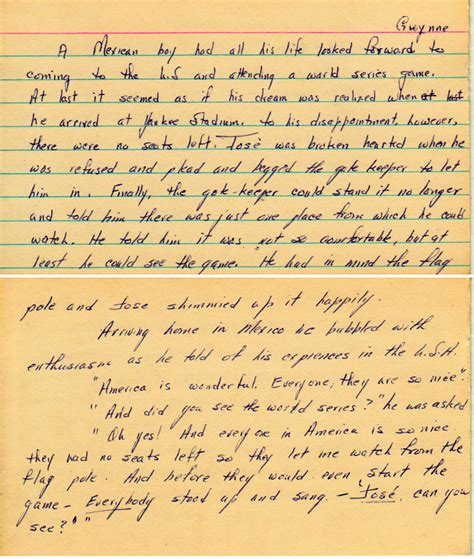 Gwynne
A Merican boy had all his life looked forward to
coming to the U.S and attending a world series game.
At last it seemed as if his dream was realized when at last
he arrived at Yankee Stadium. to his disappointment, however,
there were no seats left. José was broken heartd when he
was refused and plead and begged the gate keeper to let
him in. Finally, the gate-keeper could stand it no longer
and told him there was just one place from which he could
watch. He told him it was not so comfortable, but at
least he could see the game. He had in mind the flag
pole and Jose shimmied up it happily.
Arriving home in Mexico he bubbled with
enthusiasm as he told of his expriences in the U.S.A.
"America is wonderful. Everyone, they are so nice".
"And did you see the world series?" he was asked
"Oh yes! And everyone in America is so nice
they had no seats left so they let me watch from the
flag pole. And before they would even start the
game - Everybody stood up and sang - José, can you
see?""